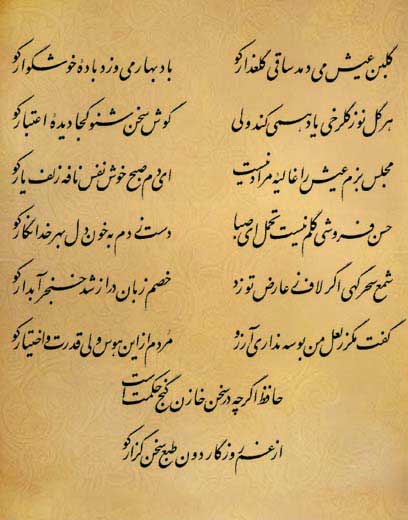 گلبن عیش می دمد ساقی گلعذار کو باد بهار می وزد باده خوشگوار کو
هر گل نو ز گلرخی یاد همی کند ولی گوش سخن شنو کجا دیده اعتبار کو
مجلس بزم عیش را غالیه مراد نیست ای دم صبح خوش نفس نافه زلف یار کو
حسن فروشی گلم نیست تحمل ای صبا دست زدم به خون دل بهر خدا نگار کو
شمع سحرگهی اگر لاف ز عارض تو زد خصم زبان دراز شد خنجر آبدار کو
گفت مگر ز لعل من بوسه نداری آرزو مردم از این هوس ولی قدرت و اختیار کو
حافظ اگر چه در سخن خازن گنج حکمت است
از غم روزگار دون طبع سخن گزار کو